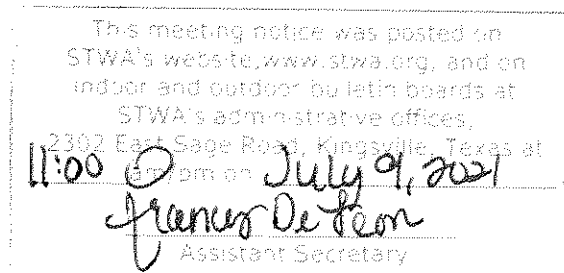 This meeting notice was posted on
STWA's website, www.stwa.org, and on
indoor and outdoor bulletin boards at
STWA's administrative offices,
2302 East Sage Road, Kingsville, Texas at
11:00 am/pm on July 9, 2021
Frances De Leon
Assistant Secretary